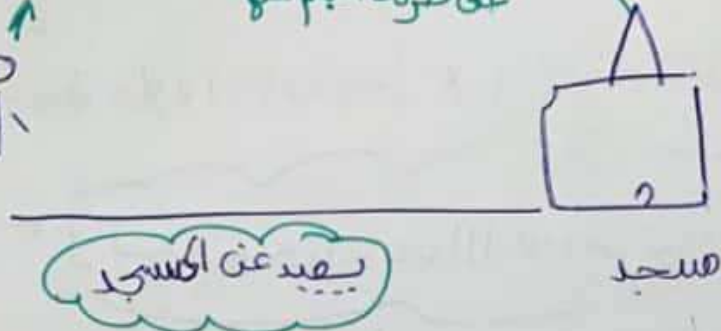 على
يبعد عن المسجد
مسجد